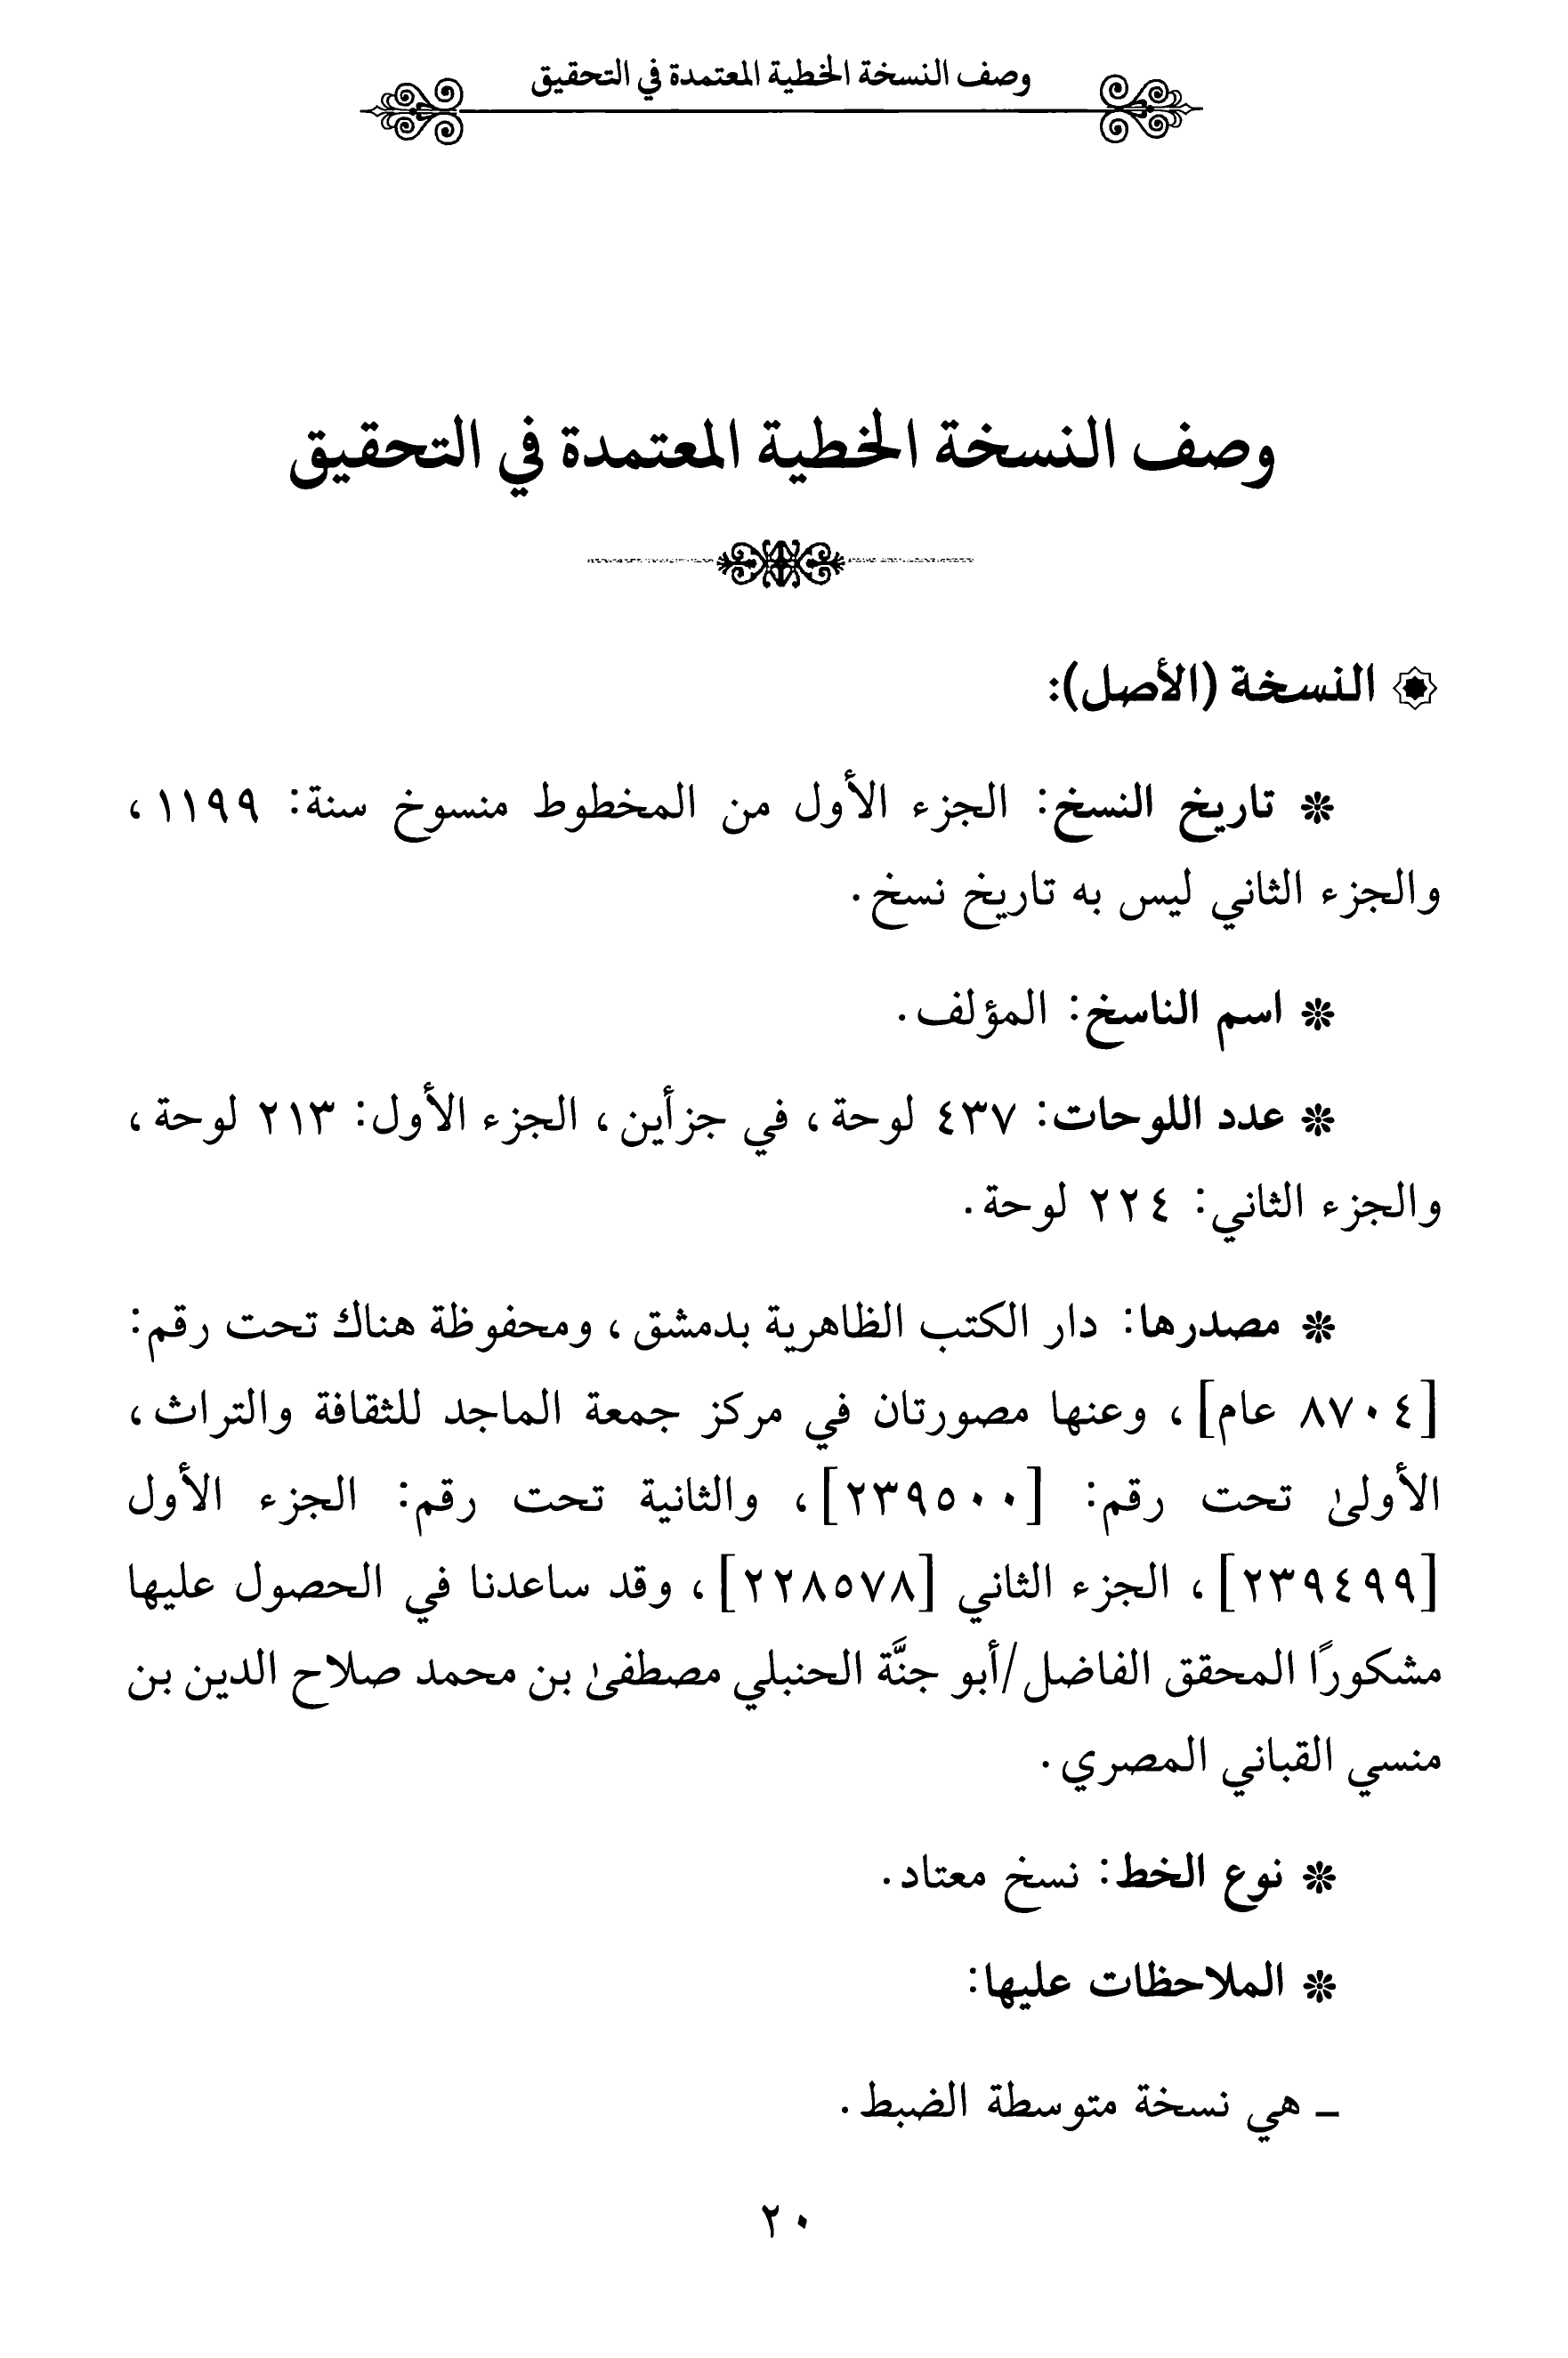 وصف النسخة الخطية المعتمدة في التحقيق
وصف النسخة الخطية المعتمدة في التحقيق
النسخة (الأصل):
* تاريخ النسخ: الجزء الأول من المخطوط منسوخ سنة: ١١٩٩،
والجزء الثاني ليس به تاريخ نسخ.
* اسم الناسخ: المؤلف.
* عدد اللوحات: ٤٣٧ لوحة، في جزأين، الجزء الأول: ٢١٣ لوحة،
والجزء الثاني: ٢٢٤ لوحة.
* مصدرها: دار الكتب الظاهرية بدمشق، ومحفوظة هناك تحت رقم:
[٨٧٠٤ عام]، وعنها مصورتان في مركز جمعة الماجد للثقافة والتراث،
الأولىٰ تحت رقم: [٢٣٩٥٠٠]، والثانية تحت رقم: الجزء الأول
[٢٣٩٤٩٩]، الجزء الثاني [٢٢٨٥٧٨]، وقد ساعدنا في الحصول عليها
مشكورًا المحقق الفاضل/أبو جنَّة الحنبلي مصطفىٰ بن محمد صلاح الدين بن
منسي القباني المصري.
* نوع الخط: نسخ معتاد.
* الملاحظات عليها:
ـ هي نسخة متوسطة الضبط.
٢٠